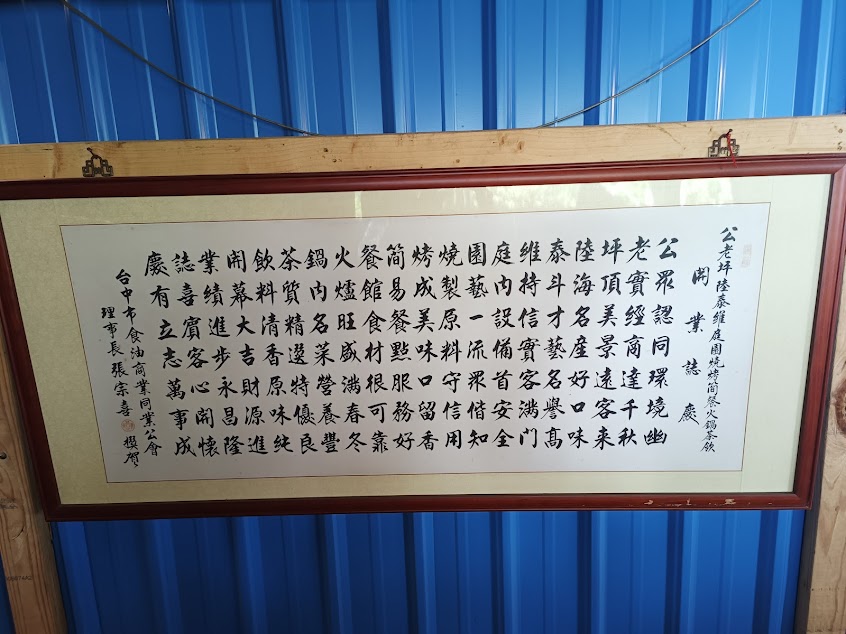 公老坪陸泰維庭園燒烤簡餐火鍋茶飲
開業誌慶
公眾認同環境幽
老實經商達千秋
坪頂美景遠客來
陸海名產好口味
泰斗才藝名譽高
維持信實客滿門
庭內設備首安全
園藝一流眾偕知
燒製原料守信用
烤成美味口留香
簡易餐點服務好
餐館食材根可靠
火爐旺盛滿春冬
鍋內名菜營養豐
茶質精選特優良
飲料清香原味純
開幕大吉財源進
業績進步永昌隆
誌喜賓客心開懷
慶有立志萬事成
台中市食油商業同業公會
理事長張宗喜 撰賀